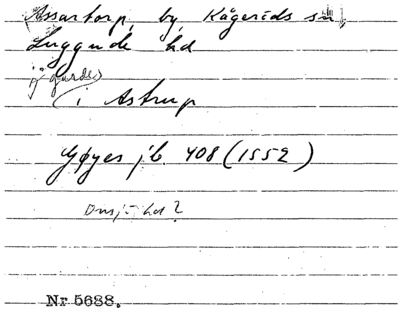 Assartorp by, Kågeröds sn
Luggude hd
ij garde
i Astrup
Gøyes jb. 408 (1552)
Onsjö hd?
Nr 5688.